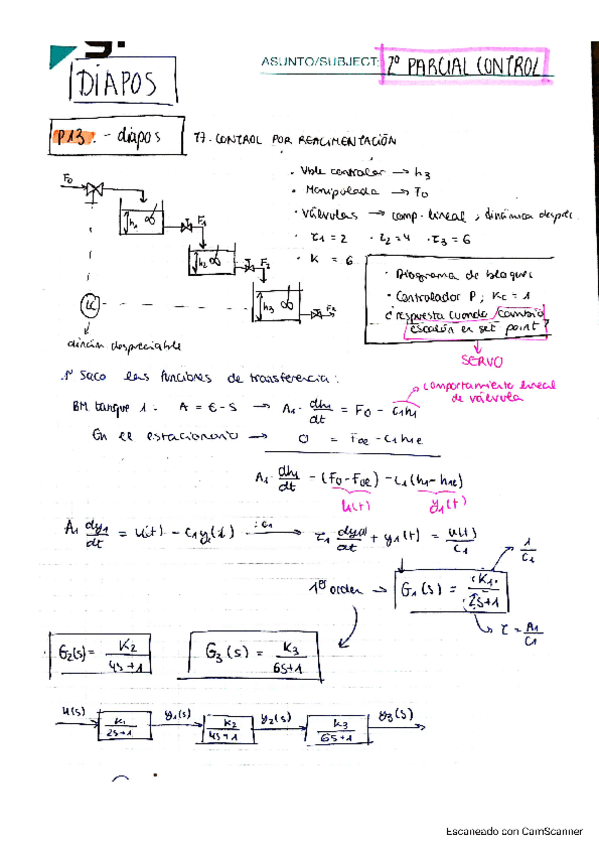 ASUNTO/SUBJECT: 2º PARCIAL CONTROL
DIAPOS
P13. - diapos
T7. CONTROL POR REALIMENTACIÓN
· Vble controlar → h3
· Manipulada → F0
· Válvulas → comp. lineal, dinámica desprec.
· τ1 = 2 · τ2 = 4 · τ3 = 6
· K = 6
F0
h1
F1
h2
F2
h3
F3
LC
dinám despreciable
· Diagrama de bloques
· Controlador P; Kc = 1
¿respuesta cuando cambio
escalón en set point?
SERVO
1º Saco las funciones de transferencia:
comportamiento lineal
de válvula
BM tanque 1. A = E - S → A1 · dh1/dt = F0 - c1h1
En el estacionario → 0 = F0e - c1h1e
A1 · dh1/dt - (F0 - F0e) - c1(h1 - h1e)
u(t) y1(t)
A1 dy1/dt = u(t) - c1y1(t) : c1 → τ1 dy1(t)/dt + y1(t) = u(t)/c1
1/c1
1er orden → G1(s) = K1/2s+1
τ = A1/c1
G2(s) = K2/4s+1
G3(s) = K3/6s+1
u(s) K1/2s+1 y1(s) K2/4s+1 y2(s) K3/6s+1 y3(s)
Escaneado con CamScanner